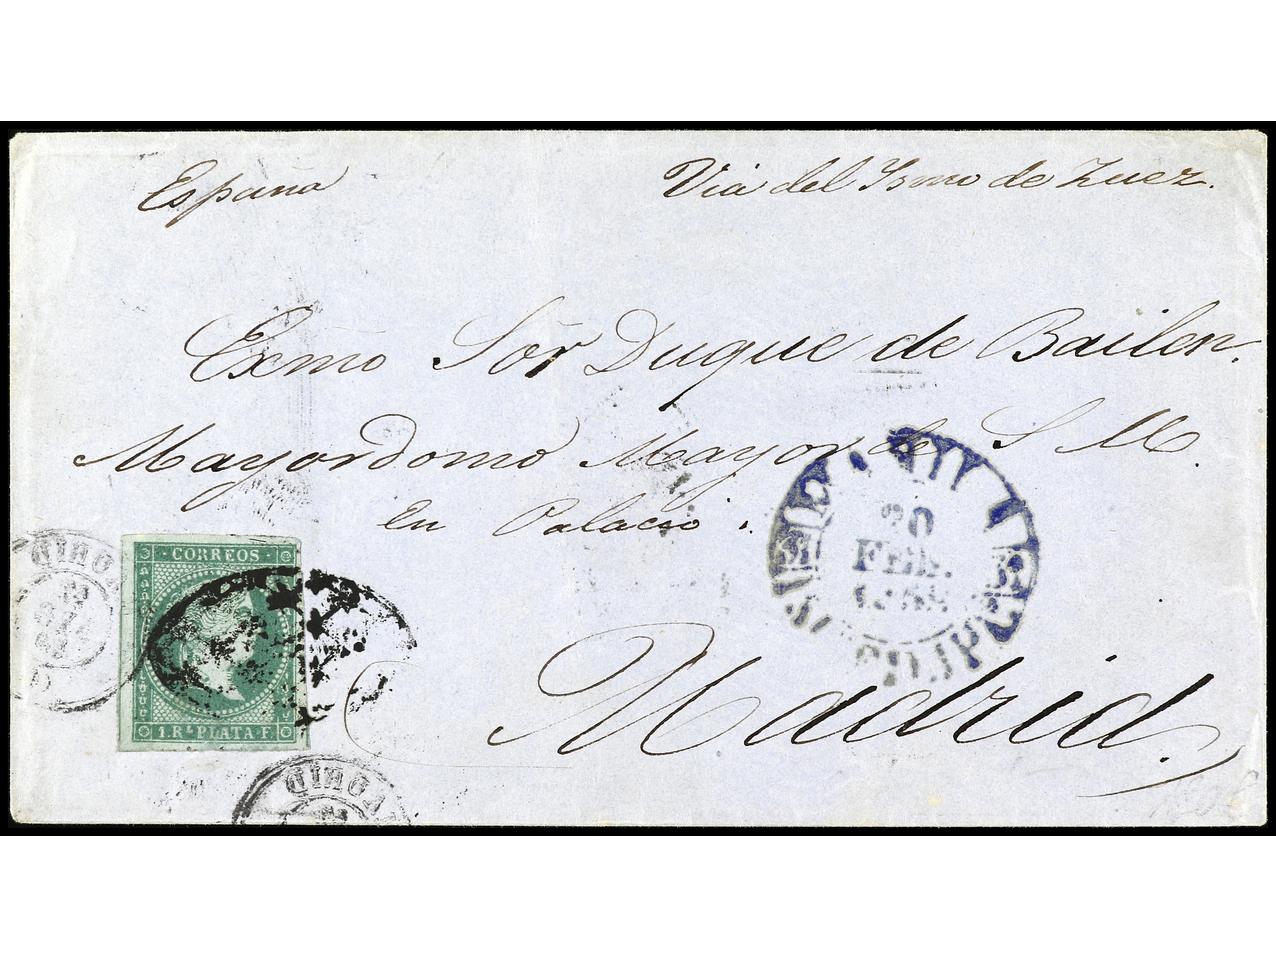 España
Via del Ysmo de Zuez.
Exmo Sör Duque de Bailen.
Mayordomo Mayor de S M.
En Palacio.
Madrid.
CORREOS
1. Rl PLATA F.
20
FEB.
MADRID
MADRID